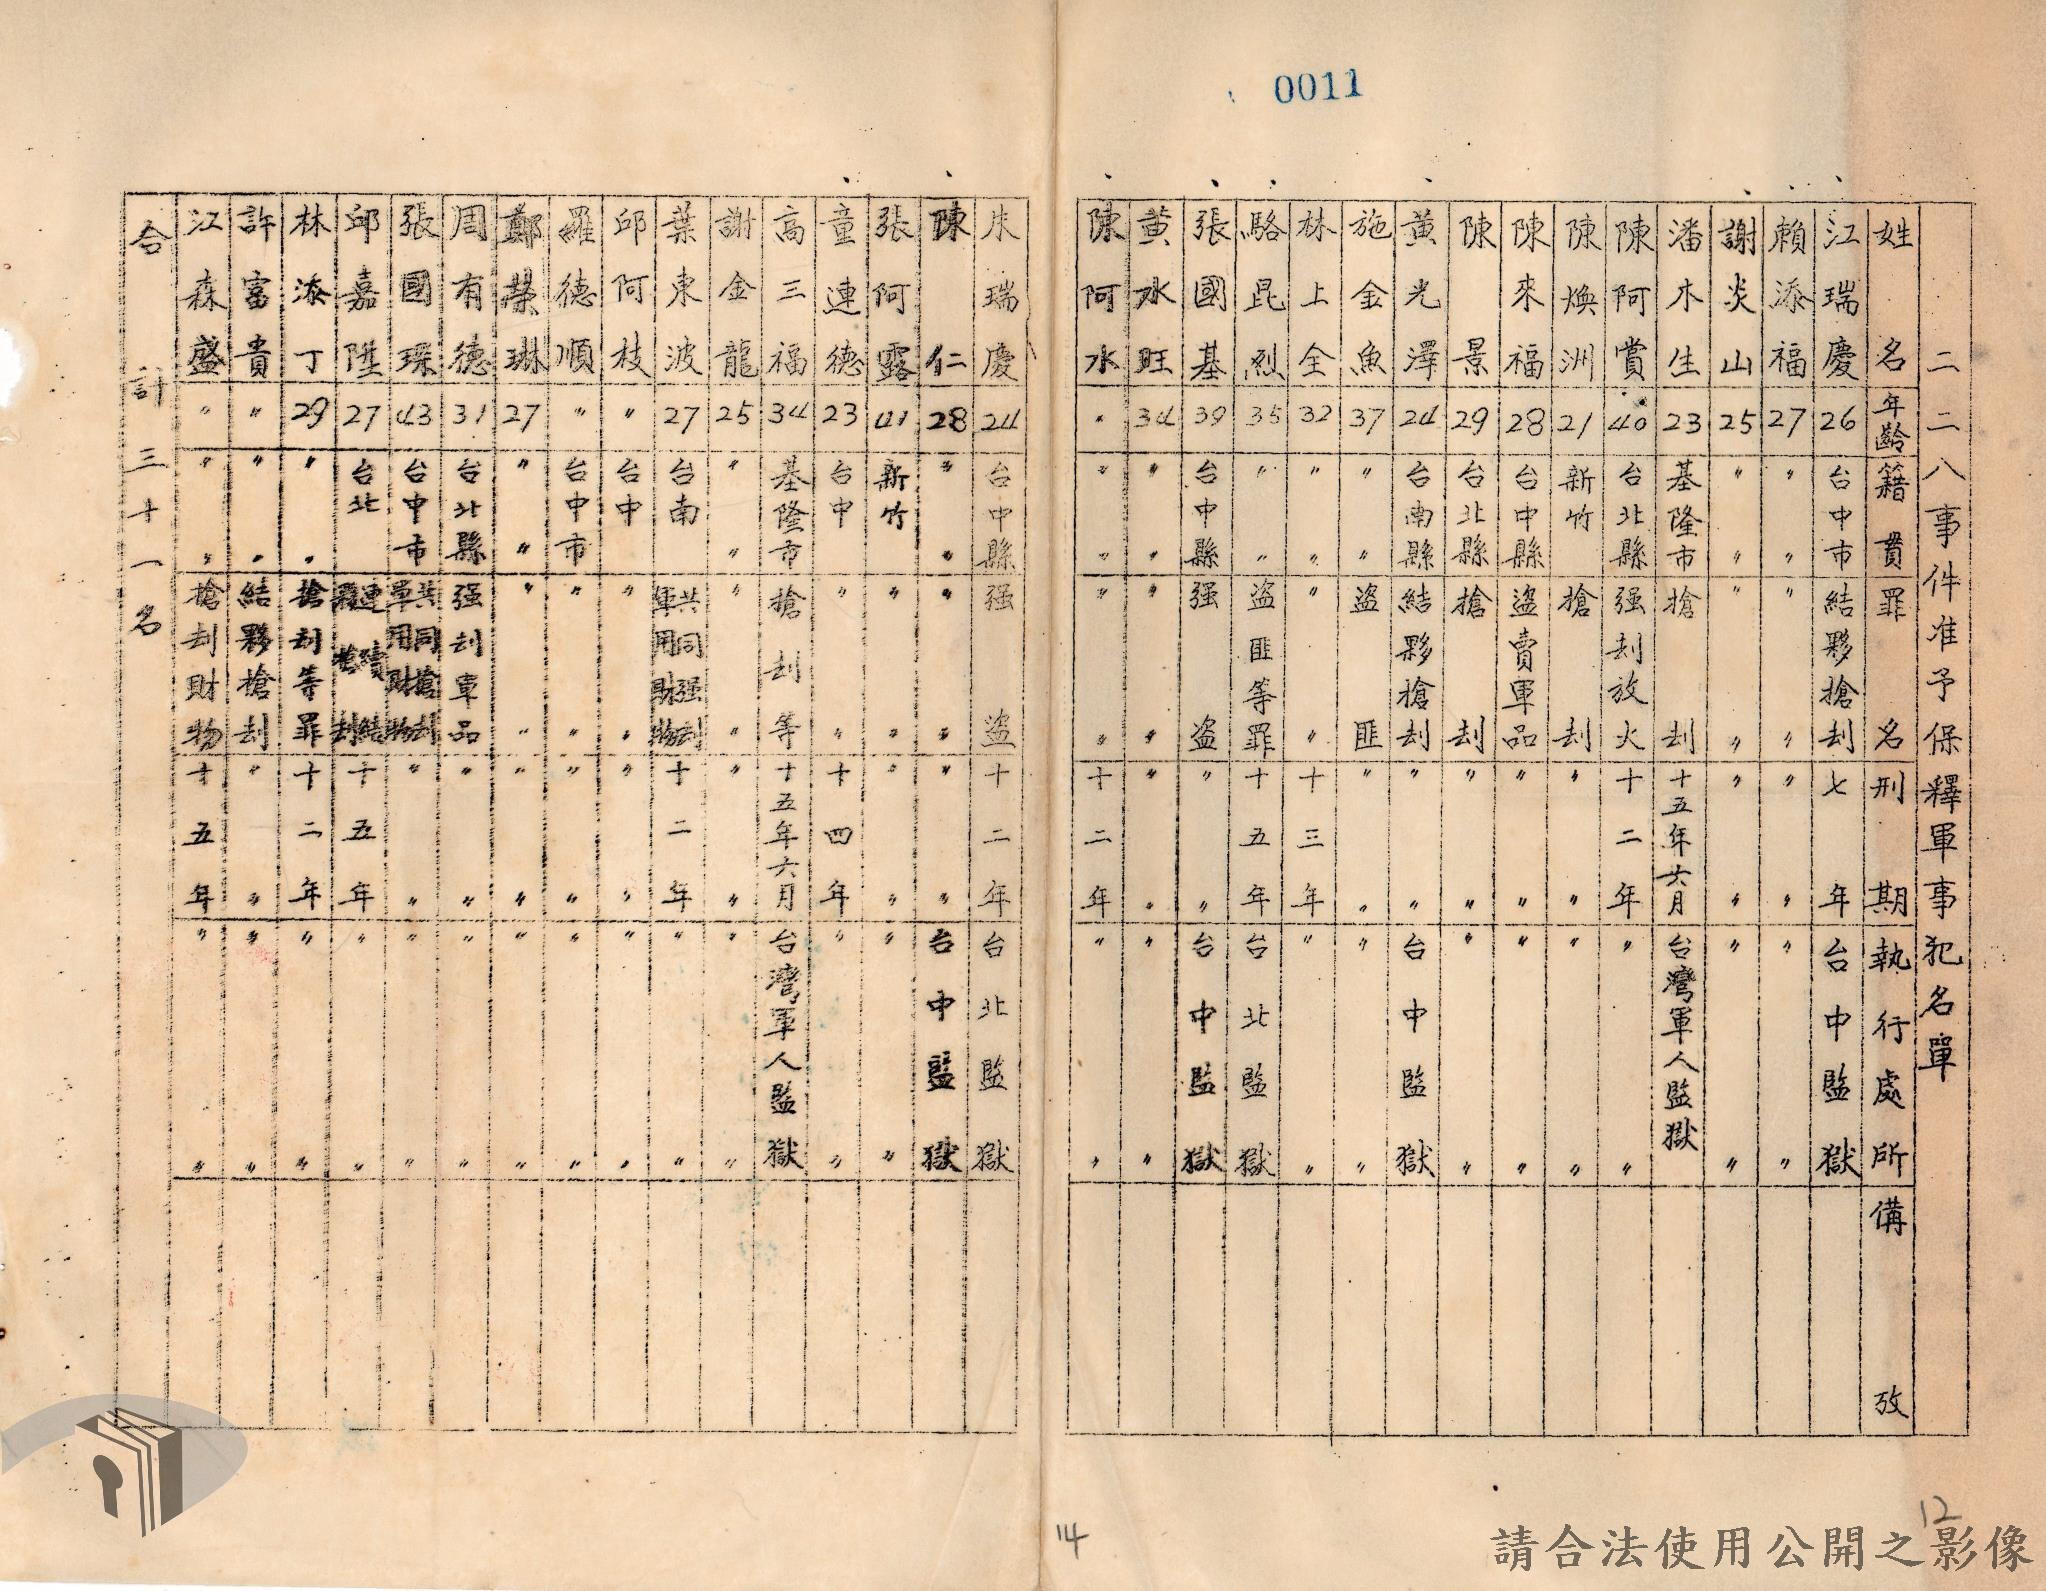 0011
二二八事件准予保釋軍事犯名單
姓名 年齡 籍貫 罪名 刑期 執行處所 備攷
江瑞慶 26 台中市 結夥搶刦 七年 台中監獄
賴添福 27 〃 〃 〃 〃 〃 〃 〃 〃
謝炎山 25 〃 〃 〃 〃 〃 〃 〃 〃
潘木生 23 基隆市 搶刦 十五年六月 台灣軍人監獄
陳阿賞 40 台北縣 强刦放火 十二年 〃 〃
陳煥洲 21 新竹 搶刦 〃 〃 〃 〃
陳來福 28 台中縣 盜賣軍品 〃 〃 〃 〃
陳景 29 台北縣 搶刦 〃 〃 〃 〃
黃光澤 24 台南縣 結夥搶刦 〃 〃 台中監獄
施金魚 37 〃 〃 盜匪 〃 〃 〃 〃
林上全 32 〃 〃 〃 〃 十三年 〃 〃
駱昆烈 35 〃 〃 盜匪等罪 十五年 台北監獄
張國基 39 台中縣 强盗 〃 〃 台中監獄
黃水旺 34 〃 〃 〃 〃 〃 〃 〃 〃
陳阿水 〃 〃 〃 〃 〃 十二年 〃 〃
朱瑞慶 24 台中縣 强盗 十二年 台北監獄
陳仁 28 〃 〃 〃 〃 〃 〃 台中監獄
張阿露 41 新竹 〃 〃 〃 〃 〃 〃
童連德 23 台中 〃 〃 十四年 〃 〃
高三福 34 基隆市 搶刦等 十五年六月 台灣軍人監獄
謝金龍 25 〃 〃 〃 〃 〃 〃 〃 〃
葉東波 27 台南 共同强刦軍用財物 十二年 〃 〃
邱阿枝 〃 台中 〃 〃 〃 〃 〃 〃
羅德順 〃 台中市 〃 〃 〃 〃 〃 〃
鄭榮琳 27 〃 〃 〃 〃 〃 〃 〃 〃
周有德 31 台北縣 强刦軍品 〃 〃 〃 〃
張國琛 43 台中市 共同搶刦軍用財物 〃 〃 〃 〃
邱嘉陞 27 台北 連續結刦 十五年 〃 〃
林添丁 29 〃 〃 搶刦等罪 十二年 〃 〃
許富貴 〃 〃 〃 結夥搶刦 〃 〃 〃 〃
江森盛 〃 〃 〃 搶刦財物 十五年 〃 〃
合計三十一名
14
12
請合法使用公開之影像